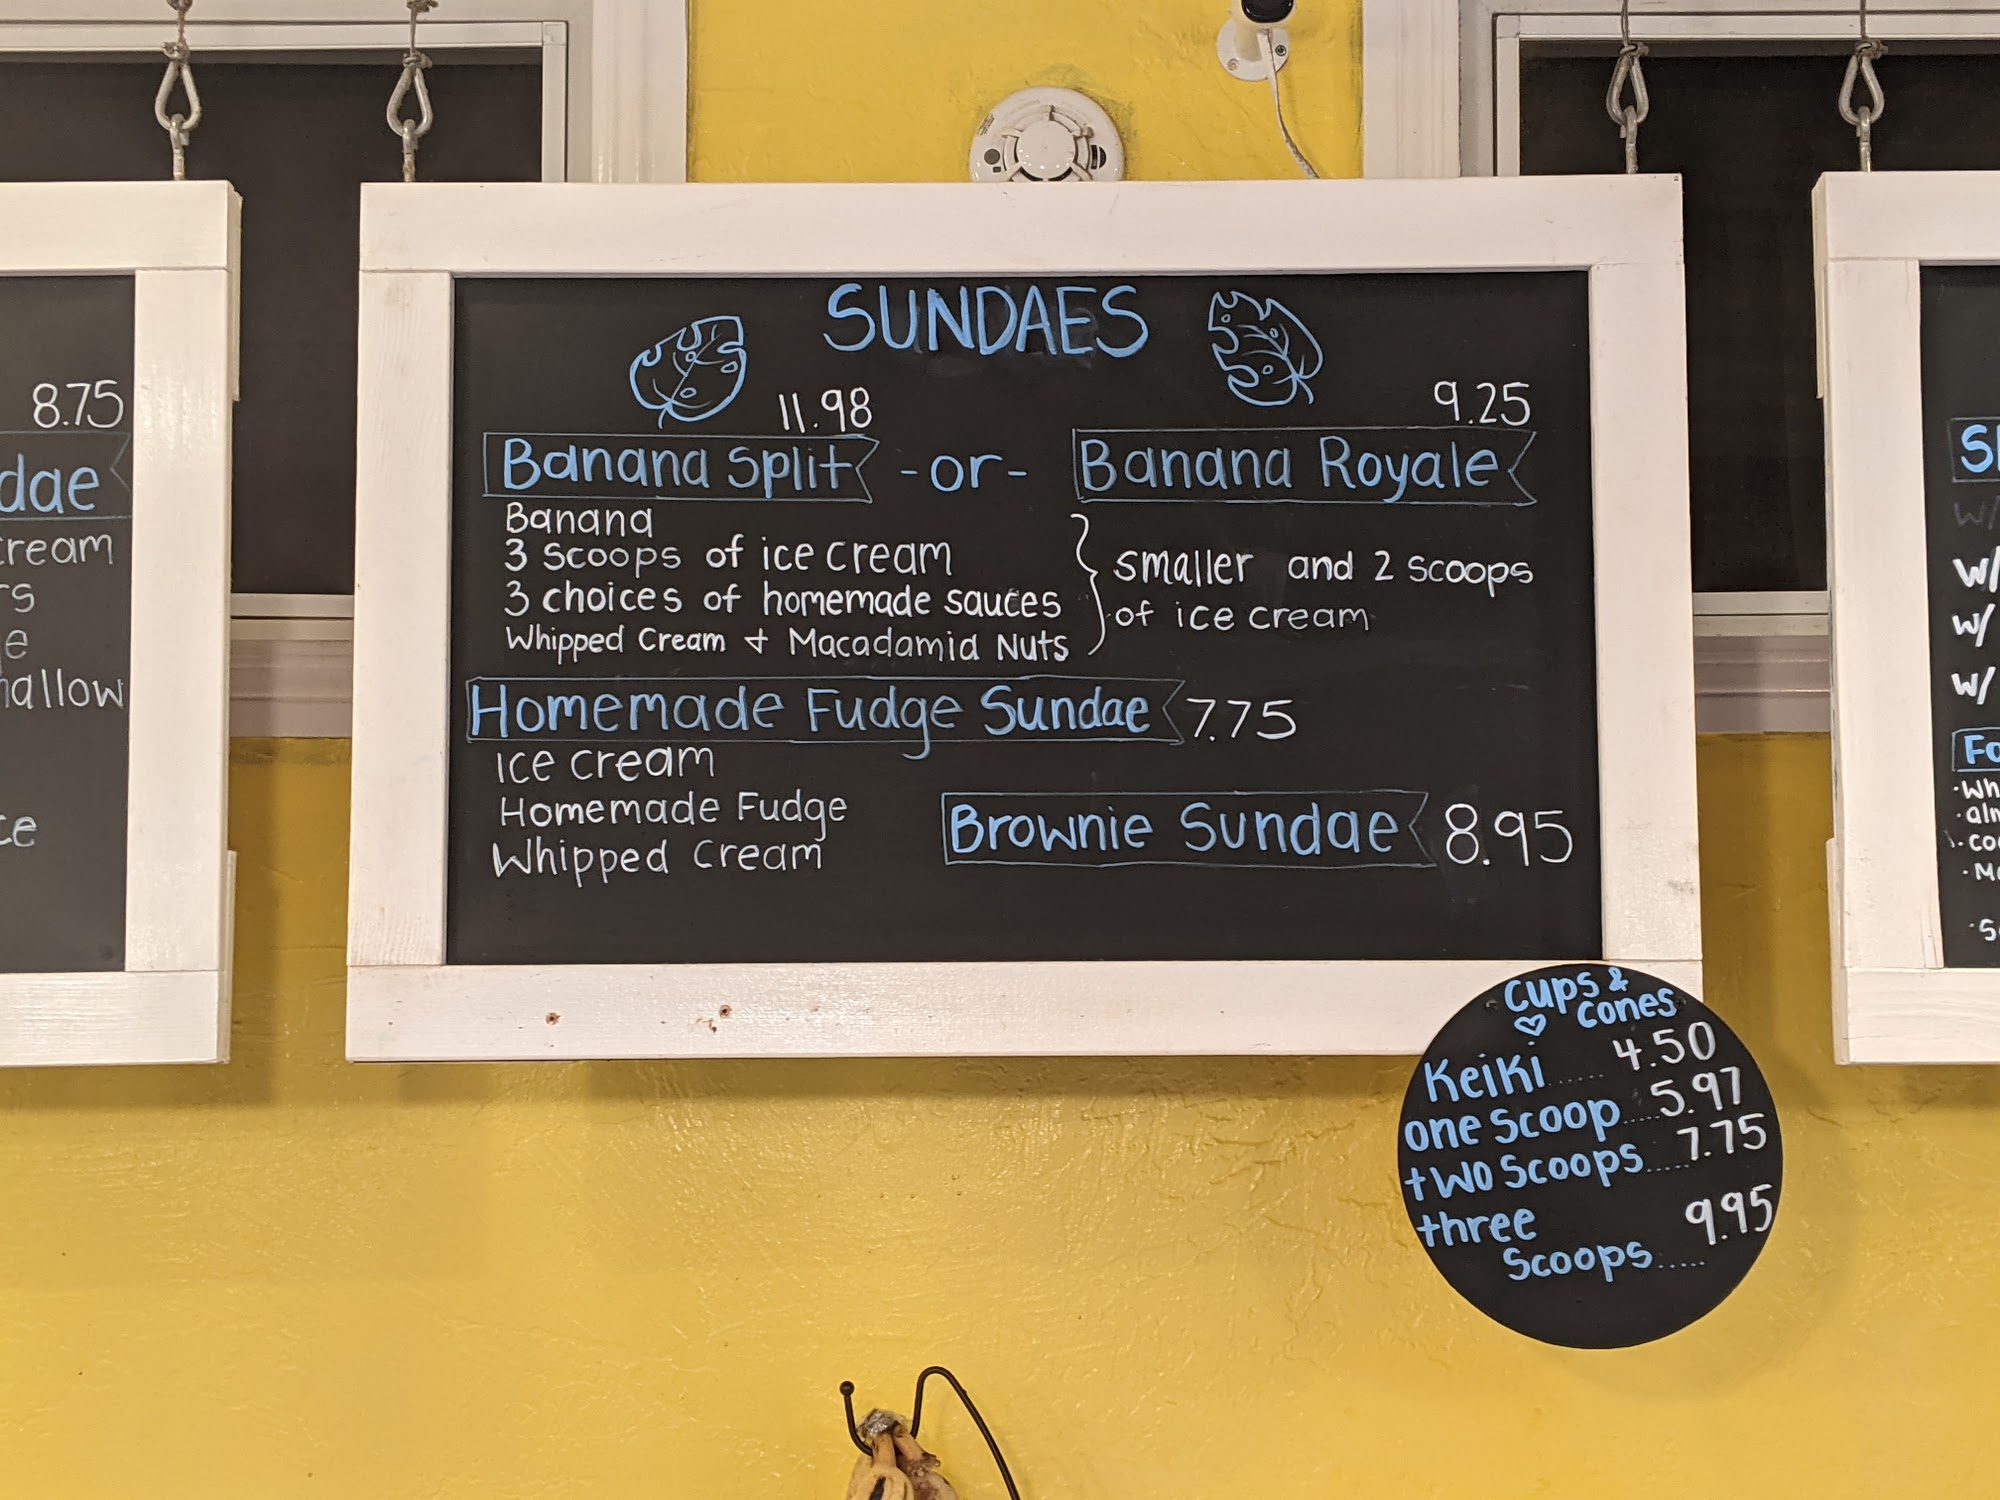 8.75
cream
hallow
SUNDAES
11.98
9.25
Banana Split -or- Banana Royale
Banana
3 scoops of ice cream
3 choices of homemade sauces
Whipped Cream + Macadamia Nuts
smaller and 2 scoops
of ice cream
Homemade Fudge Sundae 7.75
Ice cream
Homemade Fudge
Whipped Cream
Brownie Sundae 8.95
w/
w/
w/
w/
Cups &
Cones
Keiki...... 4.50
one scoop....5.97
two scoops.....7.75
three
scoops..... 9.95